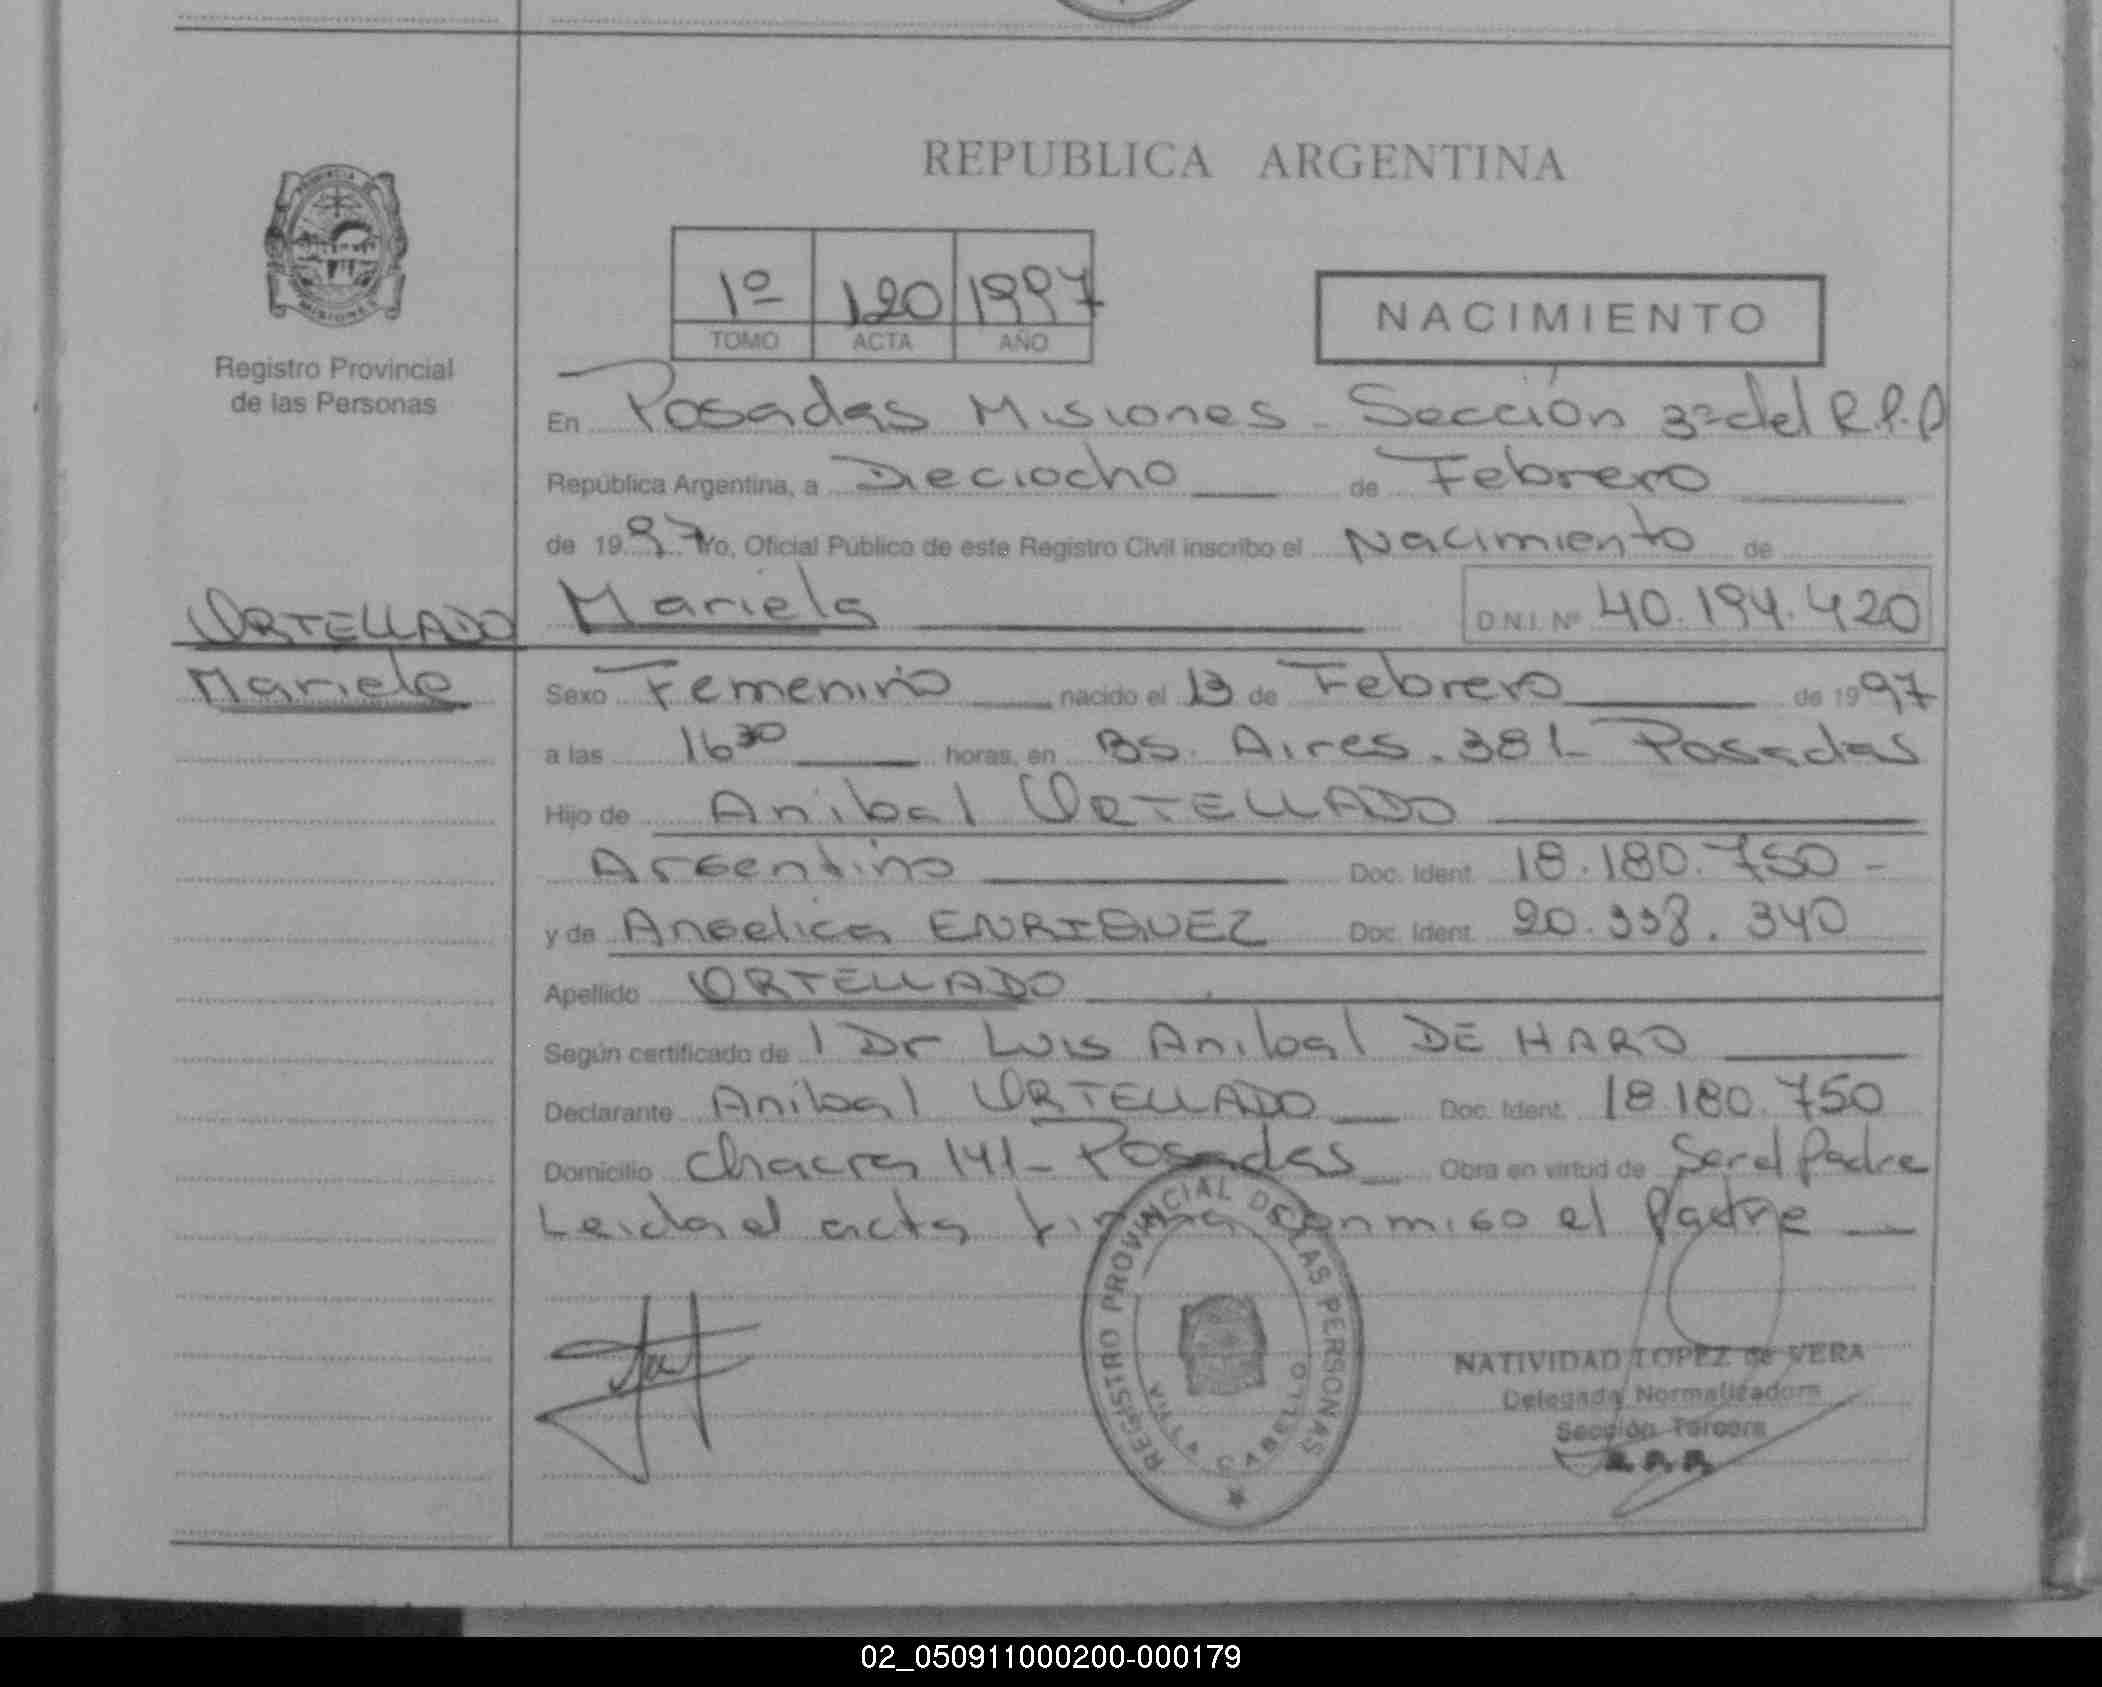 REPUBLICA ARGENTINA
PROVINCIA DE
MISIONES
Registro Provincial
de las Personas
1º 120 1997
TOMO ACTA AÑO
NACIMIENTO
En Posadas Misiones - Sección 3ª del R.P.P
República Argentina, a Dieciocho de Febrero
de 1997 Yo, Oficial Público de este Registro Civil inscribo el Nacimiento de
ORTELLADO Mariela D.N.I. Nº 40.194.420
Mariela Sexo Femenino nacido el 13 de Febrero de 1997
a las 16³⁰ horas, en Bs. Aires. 381- Posadas
Hijo de Anibal ORTELLADO
Argentino Doc. Ident. 18.180.750-
y de Angelica ENRIQUEZ Doc. Ident. 20.338.340
Apellido ORTELLADO
Según certificado de l Dr Luis Anibal DE HARO
Declarante Anibal ORTELLADO Doc. Ident. 18.180.750
Domicilio Chacra 141- Posadas Obra en virtud de Ser el Padre
Leida el acta firma conmigo el Padre
REGISTRO PROVINCIAL DE LAS PERSONAS
VILLA CABELLO
NATIVIDAD LOPEZ de VERA
Delegada Normalizadora
Sección Tercera
R.P.P.
02_050911000200-000179